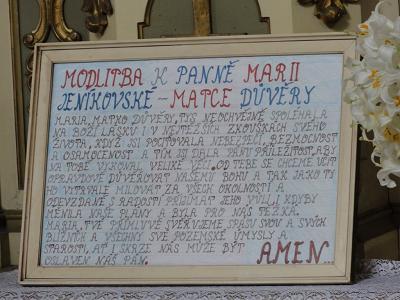 MODLITBA K PANNĚ MARII
JENÍKOVSKÉ - MATCE DŮVĚRY
MARIA, MATKO DŮVĚRY, TYS NEOCHVĚJNĚ SPOLÉHALA
NA BOŽÍ LÁSKU I V NEJTĚŽŠÍCH ZKOUŠKÁCH SVÉHO
ŽIVOTA, KDYŽ JSI POCIŤOVALA NEBEZPEČÍ, BEZMOCNOST
A OSAMOCENOST A TÍM JSI DALA PÁNU PŘÍLEŽITOST, ABY
NA TOBĚ VYKONAL VELIKÉ VĚCI. OD TEBE SE CHCEME UČIT
OPRAVDOVĚ DŮVĚŘOVAT NAŠEMU BOHU A TAK JAKO TY
HO VYTRVALE MILOVAT ZA VŠECH OKOLNOSTÍ A
ODEVZDANĚ S RADOSTÍ PŘIJÍMAT JEHO VŮLI, I KDYBY
MĚNILA NAŠE PLÁNY A BYLA PRO NÁS TĚŽKÁ.
MARIA, TVÉ PŘÍMLUVĚ SVĚŘUJEME SPÁSU SVOU A SVÝCH
BLIŽNÍCH A VŠECHNY SVÉ POZEMSKÉ ÚMYSLY A
STAROSTI, AŤ I SKRZE NÁS MŮŽE BÝT
OSLAVEN NÁŠ PÁN. AMEN...